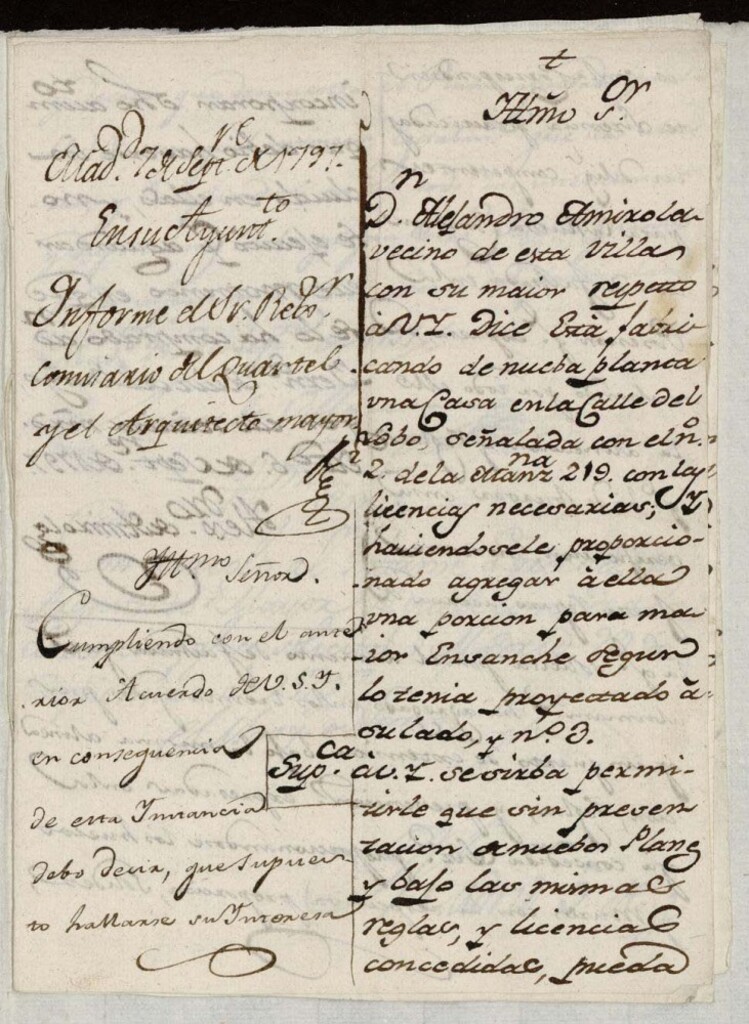 Mad.d 7 de Sept.re de 1797.
En su Ayunt.to
Informe el Sr. Rexor
comisario del Quartel
y el Arquitecto mayor
Yll.mo Señor.
Cumpliendo con el ante
rior Acuerdo de V.S.Y.
en consequencia
de esta Instancia
debo decir, que supues-
to hallarse su Interesa
t
Yllmo Sor.
Dn. Alejandro Amirola
vecino de esta Villa
con su maior respetto
à V.Y. Dice Està fabri
cando de nueba planta
una Casa en la Calle del
Lobo, señalada con el no.
2. de la Manzna 219. con las
licencias necesarias; Y
haviendosele proporcio-
nado agregar à ella
una porcion para ma
ior Ensanche segun
lo tenia proyectado à
su lado, y no. 3.
Supca. à V.Y. se sirba permi-
tirle que sin presen
tacion de nuebos Planes
y bajo las mismas
reglas, y licencias
concedidas, pueda